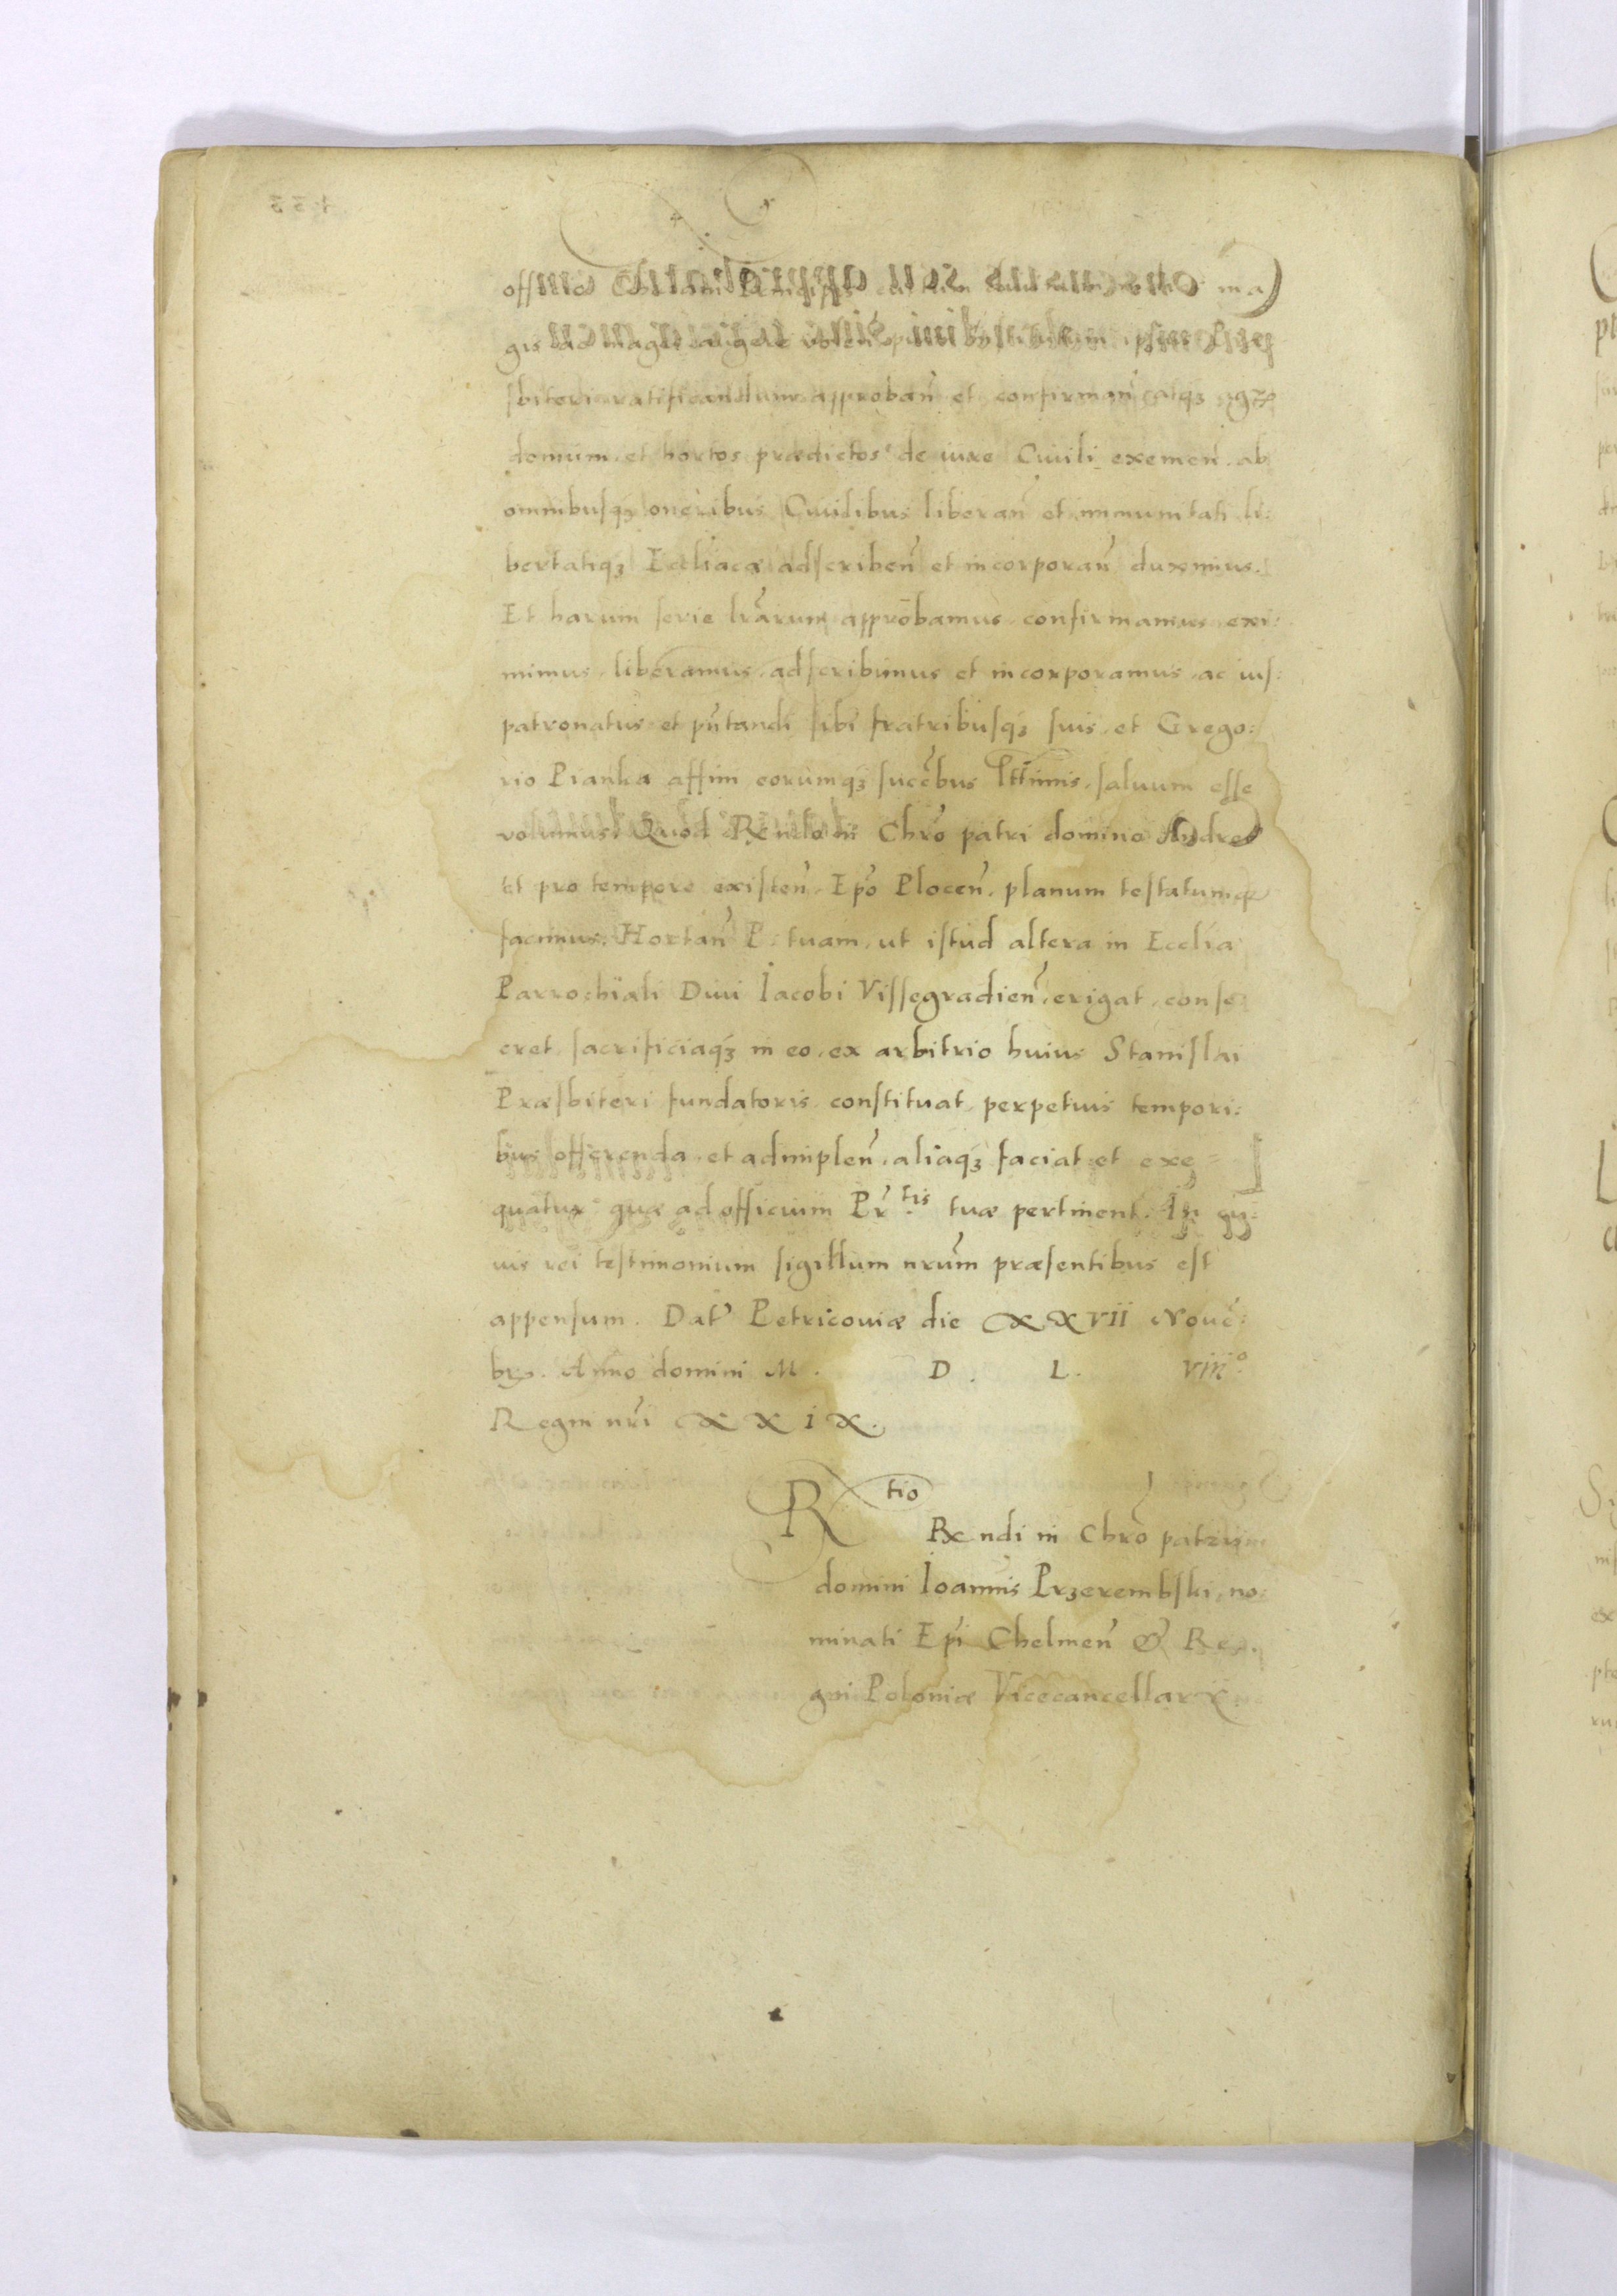 gis ac magis augere volen
sbiteri ratificandum approbañ et confirmañ
domum et hortos prædictos de iure Ciuili exemeñ. ab
omnibusq́ʒ oneribus Ciuilibus liberañ et immunitati li:
bertatiq́ʒ Eccliacæ adscribeñ et incorporañ duximus.
Et harum serie lr̃arum approbamus confirmamus exi:
mimus liberamus adscribimus et incorporamus ac ius:
patronatus et pñtandi sibi fratribusq́ʒ suis et Grego:
rio Pianka affini eorumq́ʒ succ̃bus l̃ttimis saluum esse
volumus. Quod Rendo in Chr̃o patri domino Andreæ
et pro tempore existeñ. Ep̃o Ploceñ. planum testatumq
facimus. Hortañ P. tuam, ut istud altera in Ecclia
Parrochiali Diui Iacobi Vissegradieñ. erigat, conse
cret, sacrificiaq́ʒ in eo, ex arbitrio huius Stanislai
Præsbiteri fundatoris constituat, perpetuis tempori:
bus offerenda et adimpleñ. aliaq́ʒ faciat et exe
quatur quæ ad officium Pr̃tis tuæ pertinent. In cu:
uis rei testimonium sigillum nrũm præsentibus est
appensum. Dat̃ Petricouiæ die XXVII Nouẽ:
br. Anno domini M. D. L. viii°.
Regni nr̃i XXIX.
Rtio
Rendi in Chr̃o patris
domini Ioannis Przerembski, no:
minati Ep̃i Chelmeñ & Re
gni Poloniæ Vicecancellar